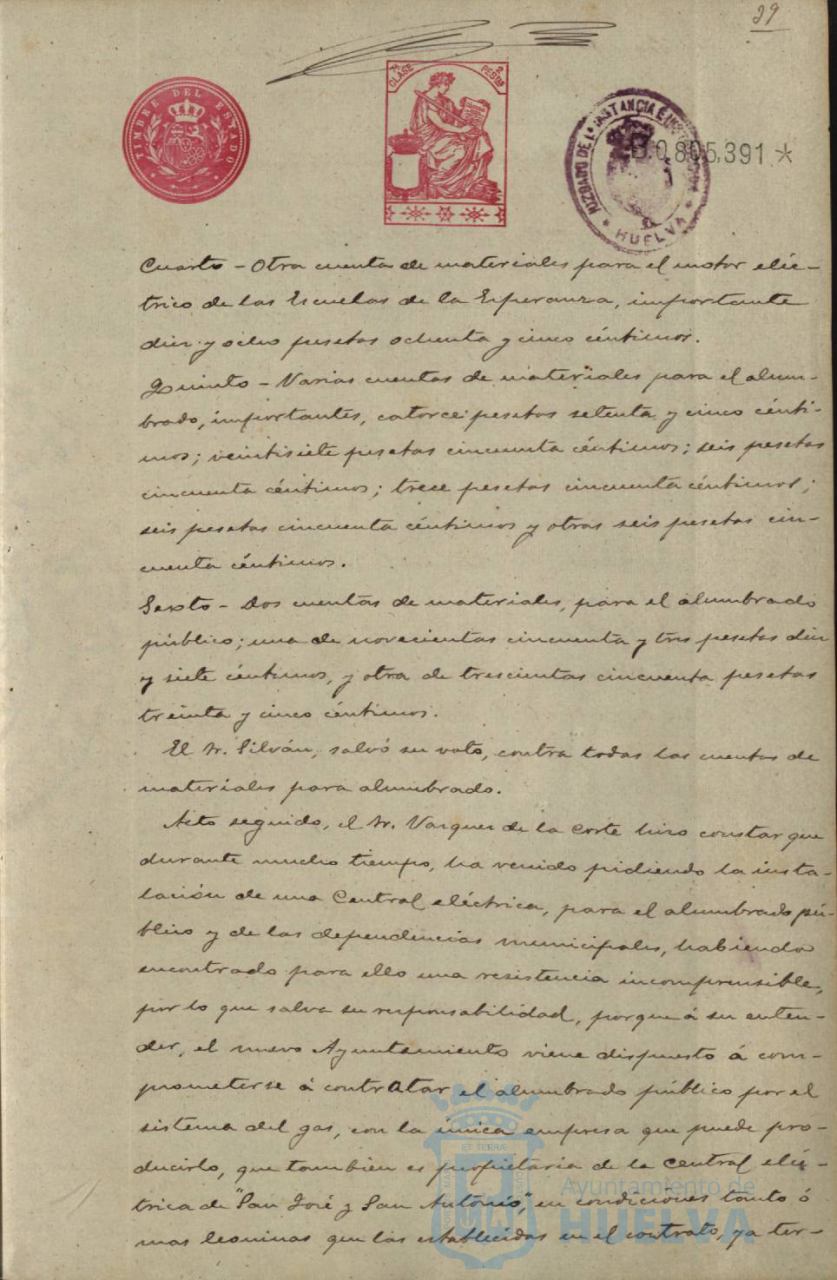 29
TIMBRE DEL ESTADO
7ª CLASE 2 PESETAS
JUZGADO DE 1ª INSTANCIA E INSTRUCCION
HUELVA
B.0.805,391 *
Cuarto - Otra cuenta de materiales para el motor eléc-
trico de las Escuelas de la Esperanza, importante
diez y ocho pesetas ochenta y cinco céntimos.
Quinto - Varias cuentas de materiales para el alum-
brado, importantes, catorce pesetas setenta y cinco cénti-
mos; veintisiete pesetas cincuenta céntimos; seis pesetas
cincuenta céntimos; trece pesetas cincuenta céntimos;
seis pesetas cincuenta céntimos y otras seis pesetas cin-
cuenta céntimos.
Sexto - Dos cuentas de materiales, para el alumbrado
público; una de novecientas cincuenta y tres pesetas diez
y siete céntimos, y otra de trescientas cincuenta pesetas
treinta y cinco céntimos.
El Sr. Silván, salvó su voto, contra todas las cuentas de
materiales para alumbrado.
Acto seguido, el Sr. Vazquez de la Corte hizo constar que
durante mucho tiempo, ha venido pidiendo la insta-
lación de una Central eléctrica, para el alumbrado pú-
blico y de las dependencias municipales, habiendo
encontrado para ello una resistencia incomprensible,
por lo que salva su responsabilidad, porque á su enten-
der, el nuevo Ayuntamiento viene dispuesto á com-
prometerse á contratar el alumbrado público por el
sistema del gas, con la única empresa que puede pro-
ducirlo, que tambien es propietaria de la Central eléc-
trica de "San José y San Antonio", en condiciones tanto ó
mas leoninas que las establecidas en el contrato, ya ter-
Ayuntamiento de
HUELVA